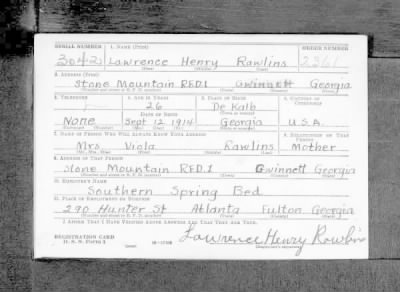 SERIAL NUMBER 1. NAME (Print) ORDER NUMBER
3042 Lawrence Henry Rawlins 2361
(First) (Middle) (Last)
2. ADDRESS (Print)
Stone Mountain RED.1 Gwinnett Georgia
(Town) (County) (State)
3. TELEPHONE 4. AGE IN YEARS 5. PLACE OF BIRTH 6. COUNTRY OF CITIZENSHIP
26 De Kalb
DATE OF BIRTH (Town or county)
None Sept 12 1914 Georgia U.S.A.
(Exchange) (Number) (Mo.) (Day) (Yr.) (State or country)
7. NAME OF PERSON WHO WILL ALWAYS KNOW YOUR ADDRESS 8. RELATIONSHIP OF THAT PERSON
Mrs Viola Rawlins Mother
(Mr., Mrs., Miss) (First) (Middle) (Last)
9. ADDRESS OF THAT PERSON
Stone Mountain RED.1 Gwinnett Georgia
(Number and street or R. F. D. number) (Town) (County) (State)
10. EMPLOYER'S NAME
Southern Spring Bed
11. PLACE OF EMPLOYMENT OR BUSINESS
290 Hunter St Atlanta Fulton Georgia
(Number and street or R. F. D. number) (Town) (County) (State)
I AFFIRM THAT I HAVE VERIFIED ABOVE ANSWERS AND THAT THEY ARE TRUE.
REGISTRATION CARD
D. S. S. Form 1 Lawrence Henry Rawlins
(Registrant's signature)